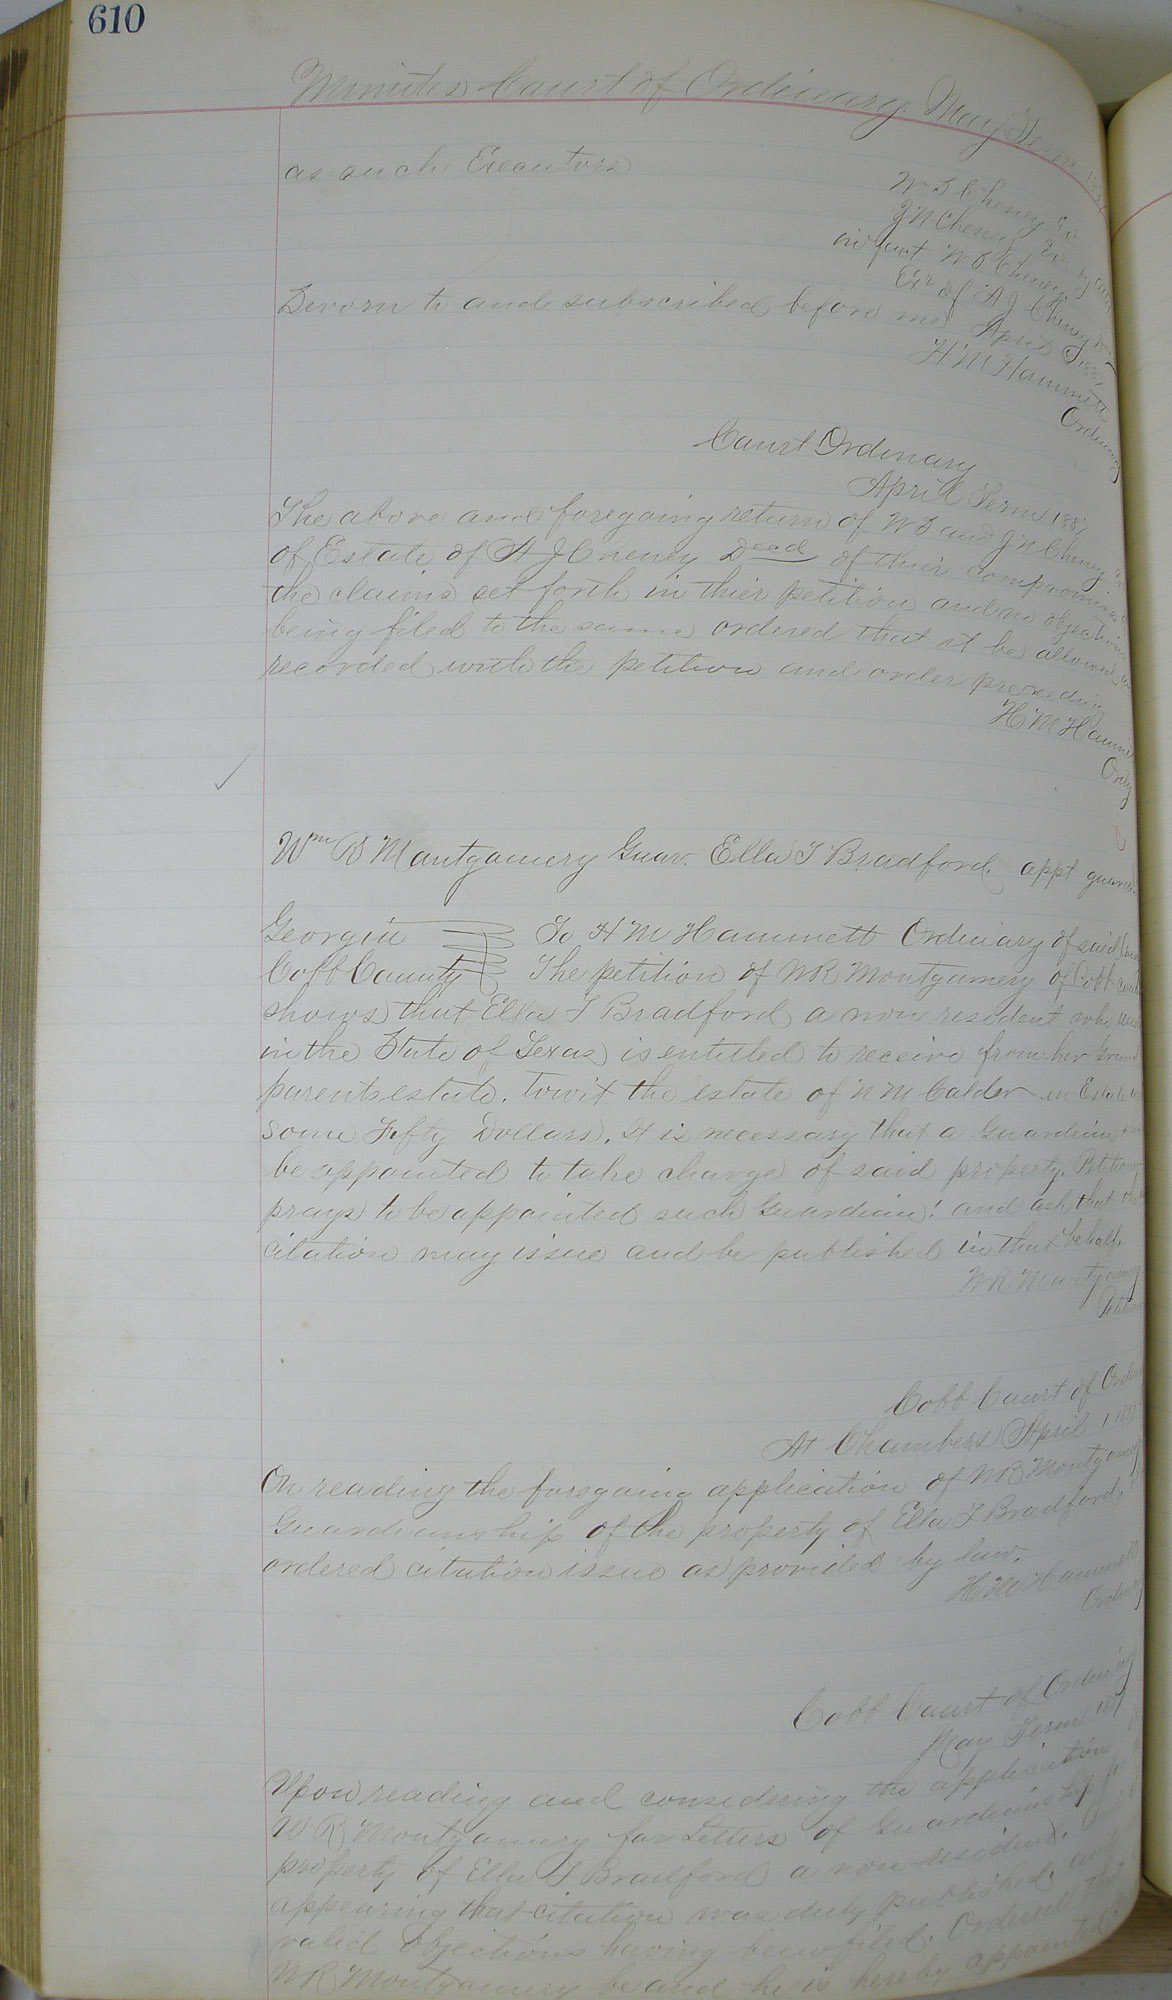 610
Minutes Court of Ordinary May Term
as such Executors
W T Cheney
J N Cheney
in fact W T Cheney
Exr of A J Cheney
Sworn to and subscribed before me April
H M Hammett
Ordinary
Court Ordinary
April Term 1887
The above and foregoing return of W T and J N Cheney
of Estate of A J Cheney Decd of thier compromise
the claims set forth in thier petition and no objections
being filed to the same ordered that it be allowed
recorded with the petition and order preceeding
H M Hammett
Ordy
Wm R Montgomery Guar. Ella T Bradford. appt
Georgia To H M Hammett Ordinary of said
Cobb County The petition of W R Montgomery of Cobb
shows that Ella T Bradford a non resident who
in the State of Texas is entitled to receive from her Grand
parents estate. Towit the estate of N M Calder
some Fifty Dollars. It is necessary that a Guardian
be appointed to take charge of said property.
prays to be appointed such Guardian: and ask that
citation may issue and be published in that behalf.
W R Montgomery
Cobb Court of
At Chambers April 1
On reading the forsgoing application of W R Montgomery
Guardianship of the property of Ella T Bradford,
ordered citation issue as provided by law.
H M Hammett
Ordinary
Cobb Court of Ordinary
May Term
Upon reading and considering the application
W R Montgomery for Letters of Guardianship
property of Ella T Bradford a non resident.
appearing that citation was duly published. and
valid objections having been filed. Ordered that
W R Montgomery be and he is hereby appointed